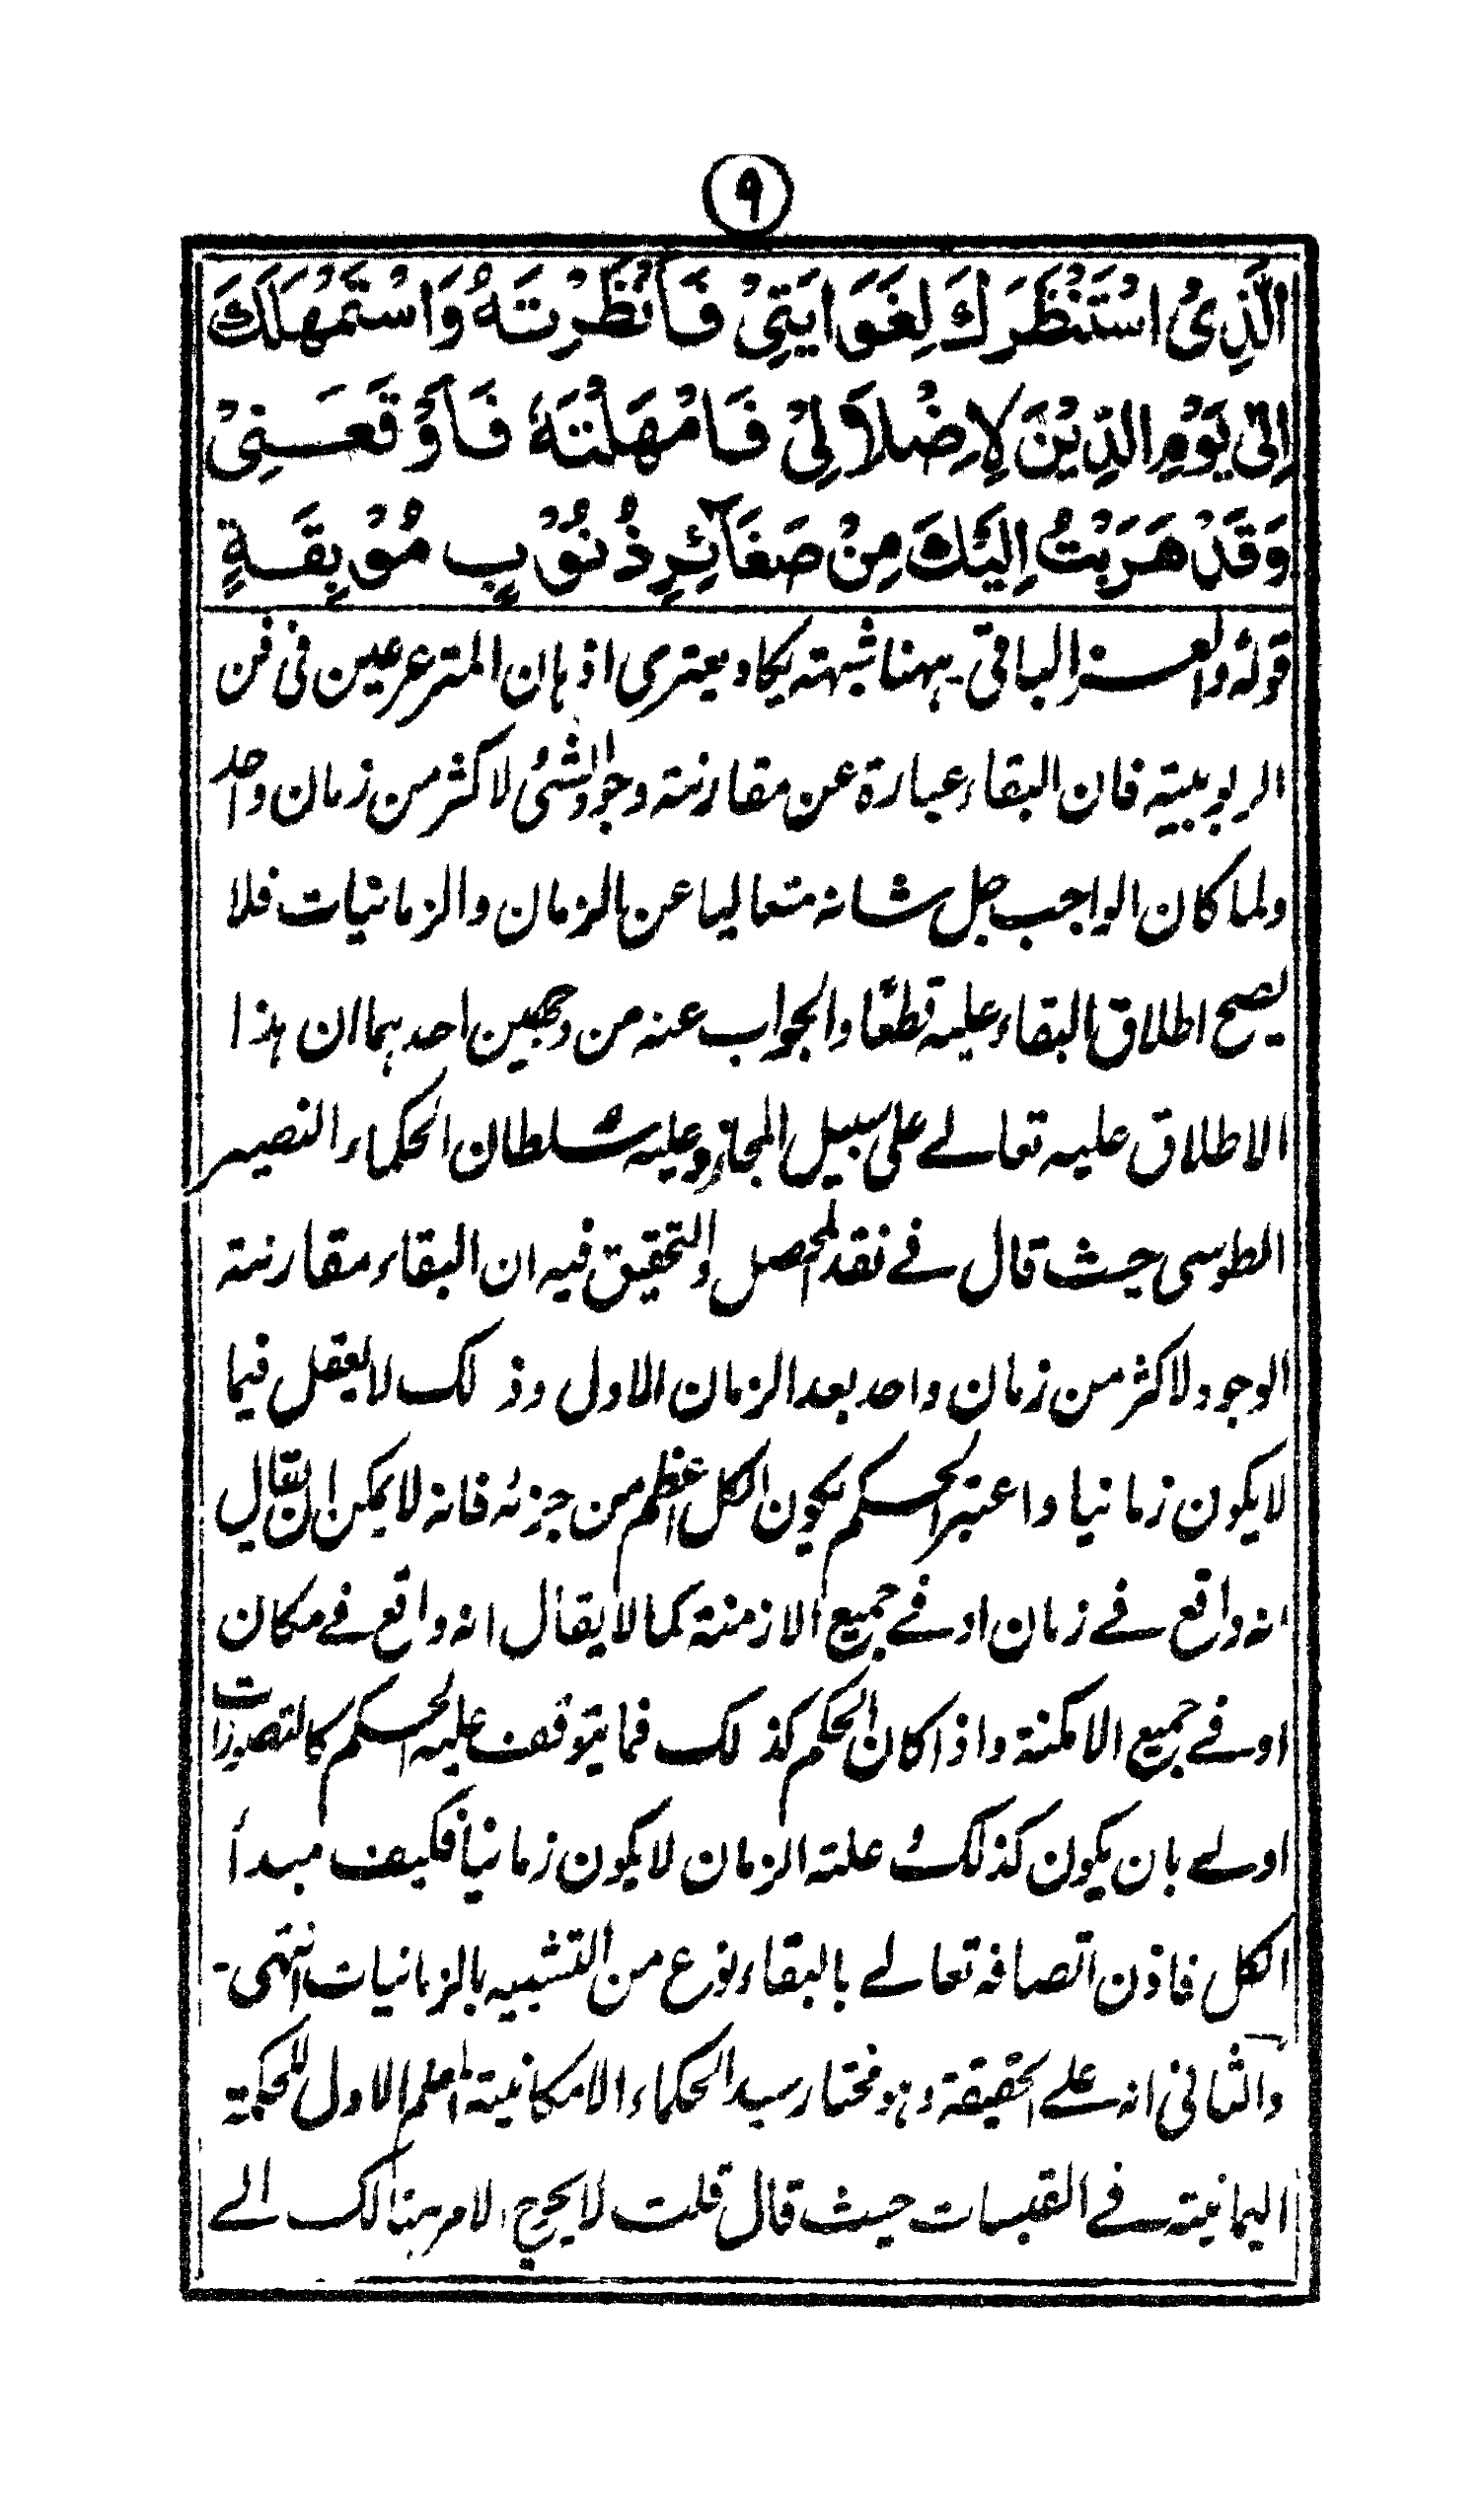 ٩
الَّذِىْ اسْتَنْظَرَكَ لِغَوَايَتِىْ فَاَنْظَرْتَهُ وَاسْتَمْهَلَكَ
اِلىٰ يَوْمِ الدِّيْنَ لِاِضْلَالِىْ فَاَمْهَلْتَهُ فَاَوْقَعَنِىْ
وَقَدْ هَرَبْتُ اِلَيْكَ مِنْ صَغَائِرِ ذُنُوْبٍ مُوْبِقَةٍ
قوله والعز الباقى۔ ههنا شبهته يكاد يعترى اذهان المترعرعين فى فن
الربوبيته فان البقاء عبارة عن مقارنته وجود الشئ لاكثر من زمان واحد
ولما كان الواجب جل شانه متعاليا عن الزمان والزمانيات فلا
يصح اطلاق البقاء عليه قطعًا والجواب عنه من وجهين احدهما ان هذا
الاطلاق عليه تعالے على سبيل المجاز وعليه سلطان الحكماء النصير
الطوسى حيث قال فے نقد المحصل والتحقيق فيه ان البقاء مقارنته
الوجود لاكثر من زمان واحد بعد الزمان الاول وذلك لا يعقل فيما
لا يكون زمانيا واعتبر الحكم بكون الكل اعظم من جزئه فانه لا يمكن ان يقال
انه واقع فے زمان او فے جميع الازمنة كما لا يقال انه واقع فے مكان
او فے جميع الامكنة واذا كان الحكم كذلك فما يتوقف عليه الحكم كالتصورات
اولے بان يكون كذلك علته الزمان لا يكون زمانيا فكيف مبدأ
الكل فاذن اتصافه تعالے بالبقاء نوع من التشبيه بالزمانيات انتهى۔
والثانى انه علے الحقيقة وهو مختار سيد الحكماء الامكانية المعلم الاول للحكمة
اليمانيته فے القبسات حيث قال قلت لا يحوج الامر هنالك الے